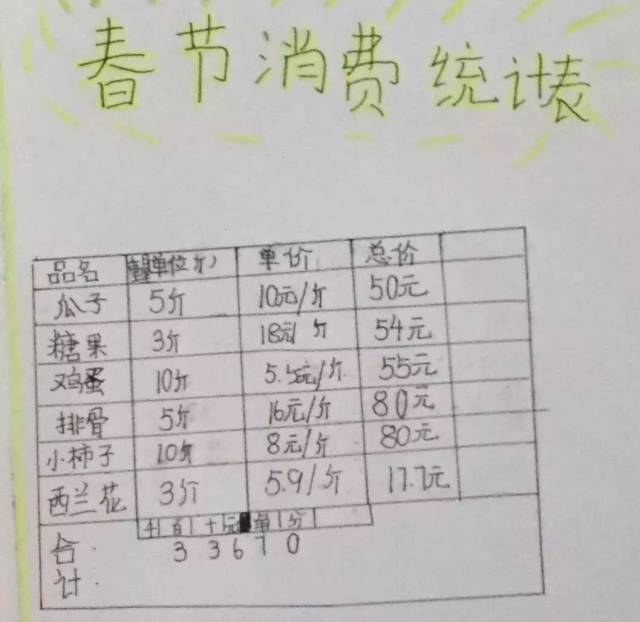 春节消费统计表
品名 重量单位(斤) 单价 总价
瓜子 5斤 10元/斤 50元
糖果 3斤 18元/斤 54元
鸡蛋 10斤 5.5元/斤 55元
排骨 5斤 16元/斤 80元
小柿子 10斤 8元/斤 80元
西兰花 3斤 5.9/斤 17.7元
千百十元 分
合计 3 3 6 7 0